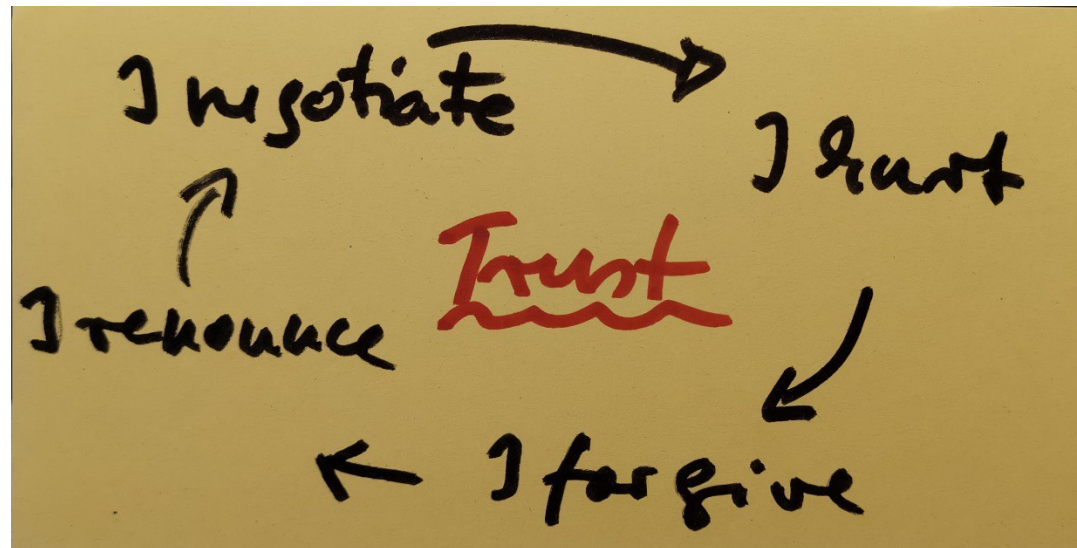 I negotiate
I hurt
Trust
I renounce
I forgive